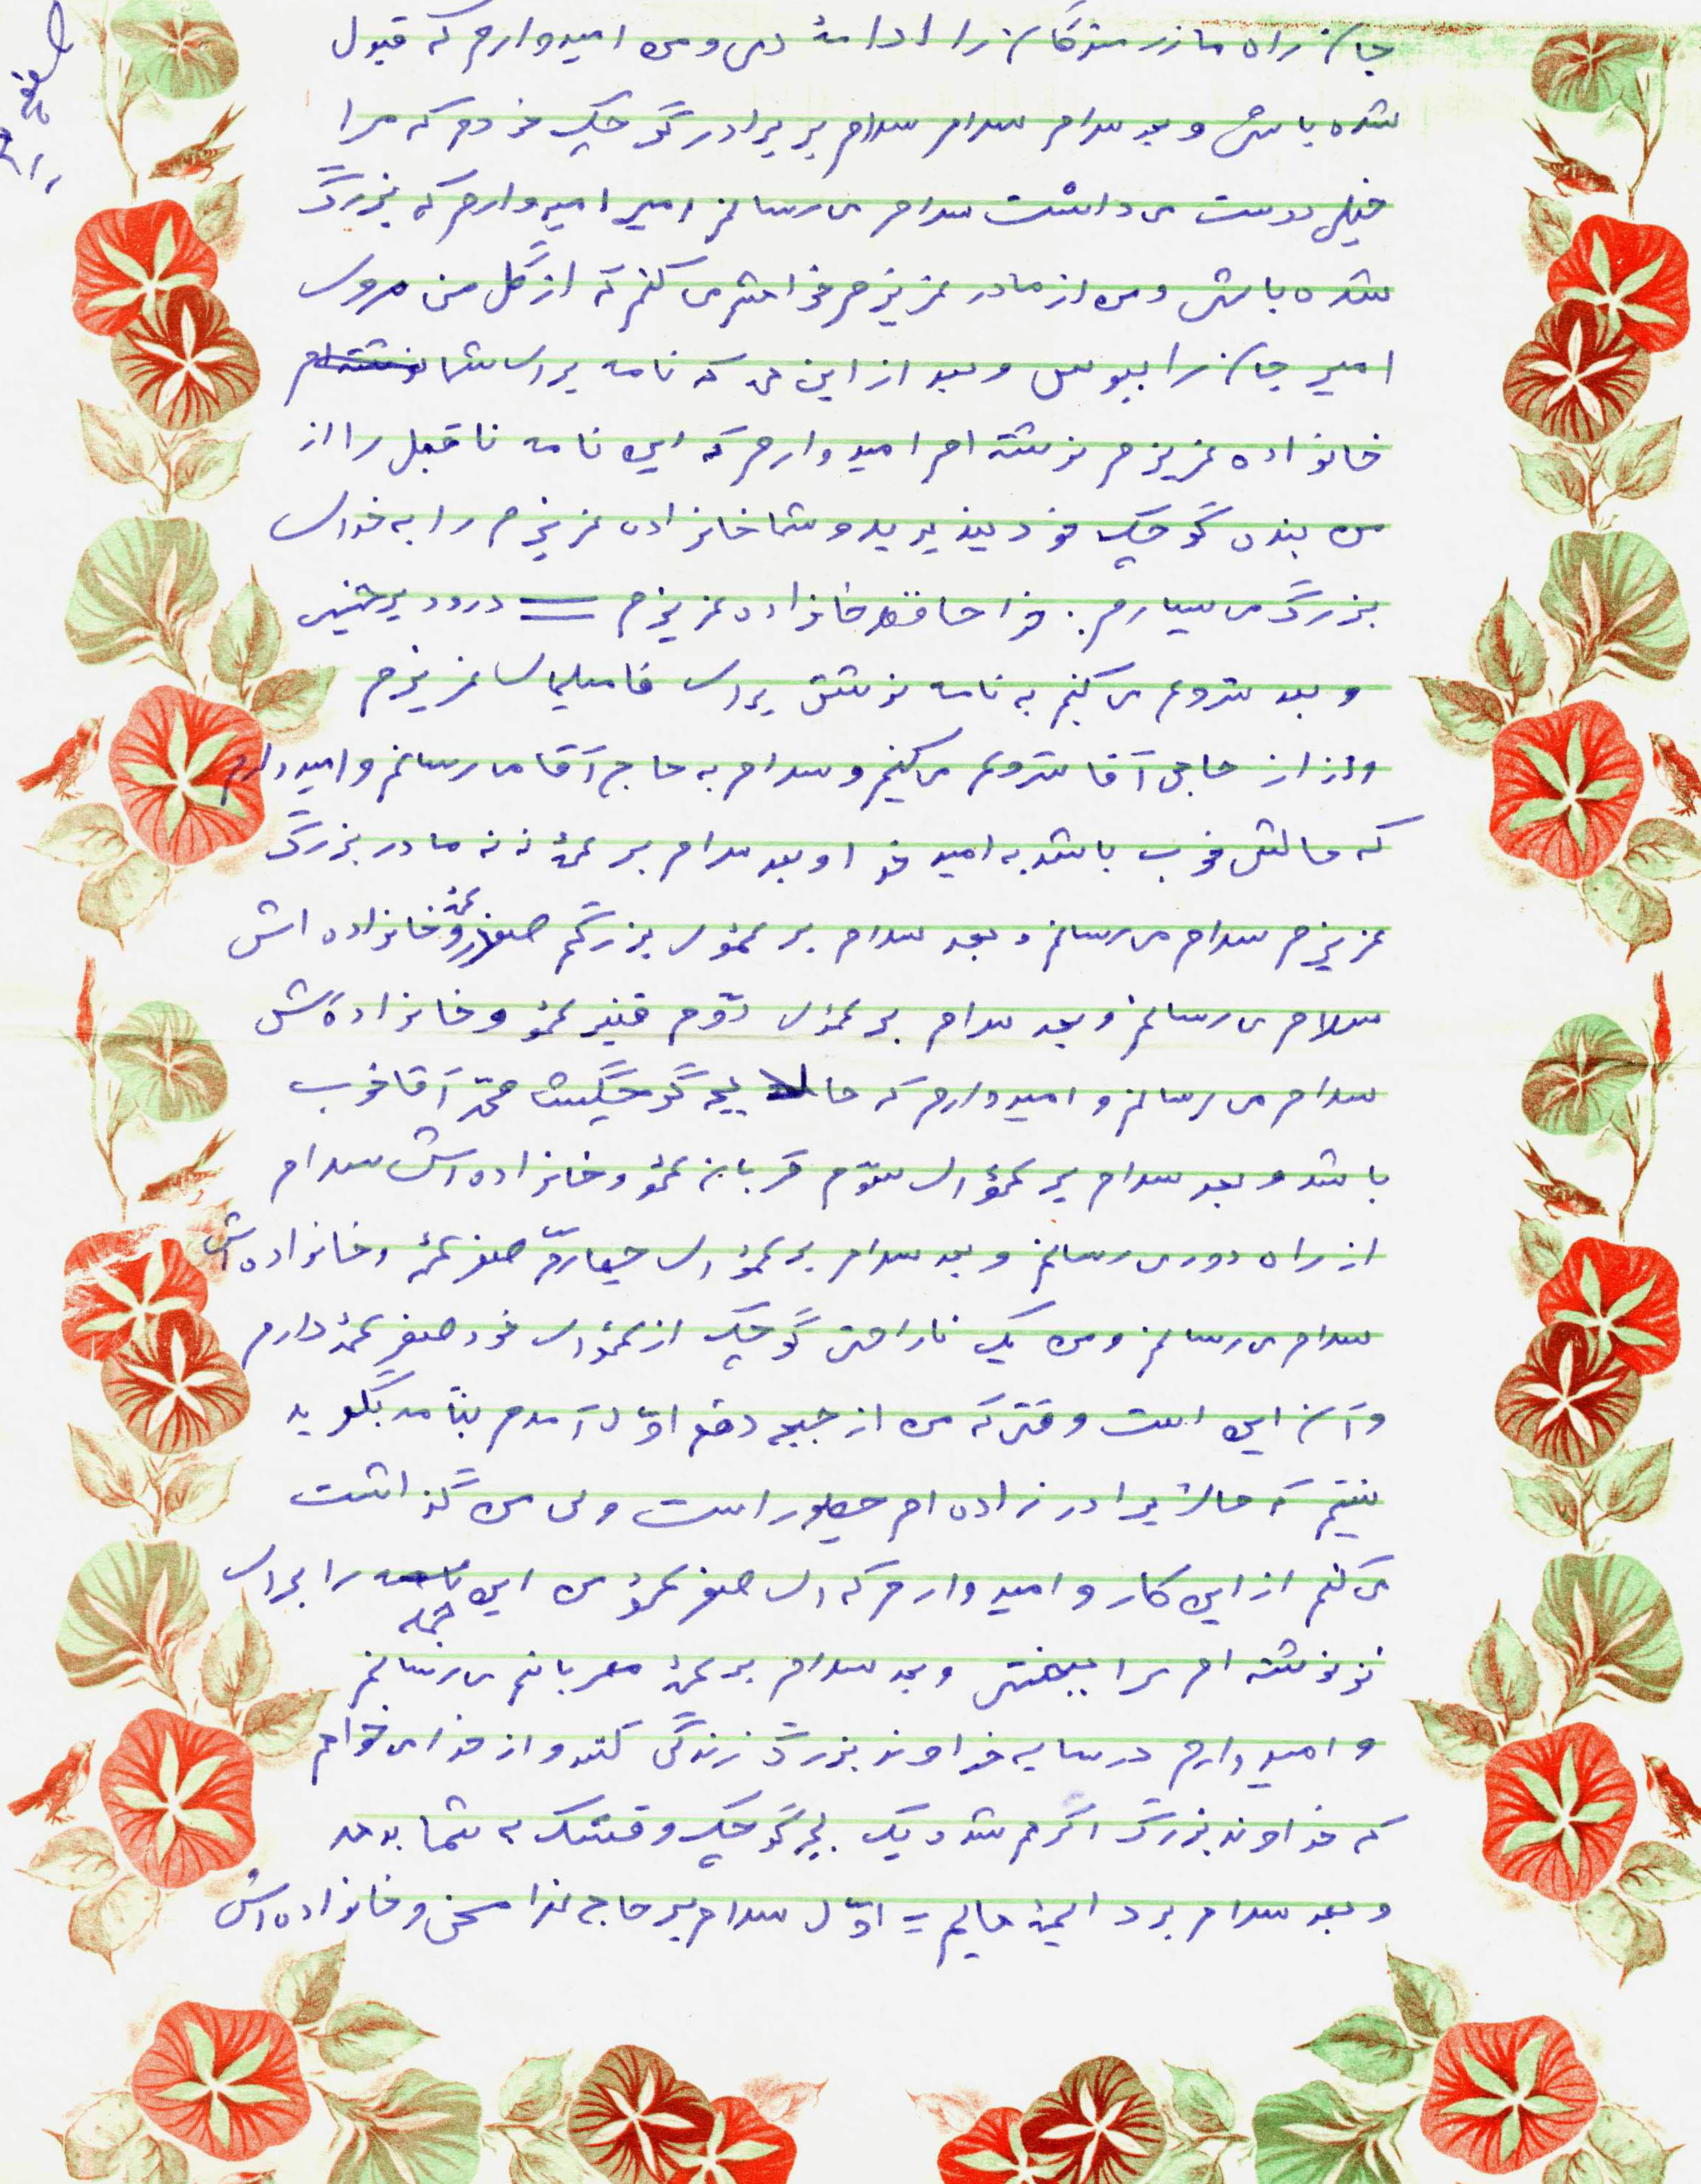 جان راه ما رزمندگان را ادامهٔ دهی و من امیدوارم که قبول
شده باشی و بعد سلام سلام سلام بر برادر گوچک خودم که مرا
خیلی دوست می داشت سلام می رسانم امیر امیدوارم که بزرگ
شده باشی و من از مادر عزیزم خواهش می کنم که از گل من روی
امیر جان را ببوس و بعد از این می که نامه برای شما نوشته‌ام
خانواده عزیزم نوشته ام امیدوارم که این نامه ناقبل را از
من بنده گوچک خود بپذیرید و شما خانواده عزیزم را به خدای
بزرگ می سپارم: خدا حافظ خانواده عزیزم = درود بر خمینی
و بعد شروع می کنم به نامه نوشتن برای فامیلهای عزیزم
و از حاجی آقا شروع می کنم و سلام به حاج آقا می رسانم و امیدوارم
که حالش خوب باشد به امید خدا و بعد سلام بر عمهٔ ننه مادر بزرگ
عزیزم سلام می رسانم و بعد سلام بر عموی بزرگم عمو و خانواده اش
سلام می رسانم و بعد سلام بر عموی دوّم قنبر عمو و خانواده‌اش
سلام می رسانم و امیدوارم که حال بچه گوچگیش محمّد آقا خوب
باشد و بعد سلام بر عموی سوّم قربان عمو و خانواده اش سلام
از راه دور می رسانم و بعد سلام بر عموی چهارم صفر عمو و خانواده اش
سلام می رسانم و من یک ناراحتی گوچک از عموی خود صفر عمو دارم
و آن این است وقتی که من از جبهه دفع اوّل آمدم نیآمد بگوید
ببینم که حال برادر زاده ام چطور است ولی من گذاشت
می کنم از این کار و امیدوارم که ای صفر عموی من این نامه جمله را برای
تو نوشته ام مرا ببخشی و بعد سلام بر عمهٔ مهربانم می رسانم
و امیدوارم در سایه خداوند بزرگ زندگی کند و از خدا می خواهم
که خداوند بزرگ اگر هم شد و یک بچه گوچک و قشنگ به شما بدهد
و بعد سلام بر دایی هایم = اوّل سلام بر حاج و خانواده اش